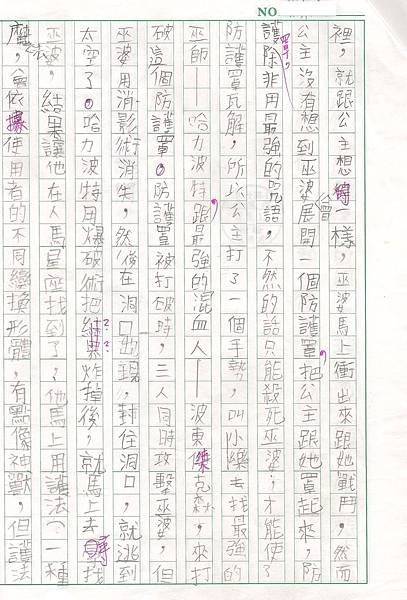 NO
裡，就跟公主想得一樣，巫婆馬上衝出來跟她戰鬥，然而
公主沒有想到巫婆會展開一個防護罩，把公主跟她罩起來，防
護罩，除非用最強的咒語，不然的話只能殺死巫婆，才能使
防護罩瓦解，所以公主打了一個手勢，叫小樂去找最強的
巫師——哈力波特，跟最強的混血人——波東傑克森，來打
破這個防護罩。防護罩被打破時，三人同時攻擊巫婆，但
巫婆用消影術消失，然後在洞口出現，封住洞口，就逃到
太空了。哈力波特用爆破術把結界??炸掉後，就馬上去尋找
巫婆，結果讓他在人馬星座找到了，他馬上用護法（一種
魔法，會依據使用者的不同變換形體，有點像神獸，但護法